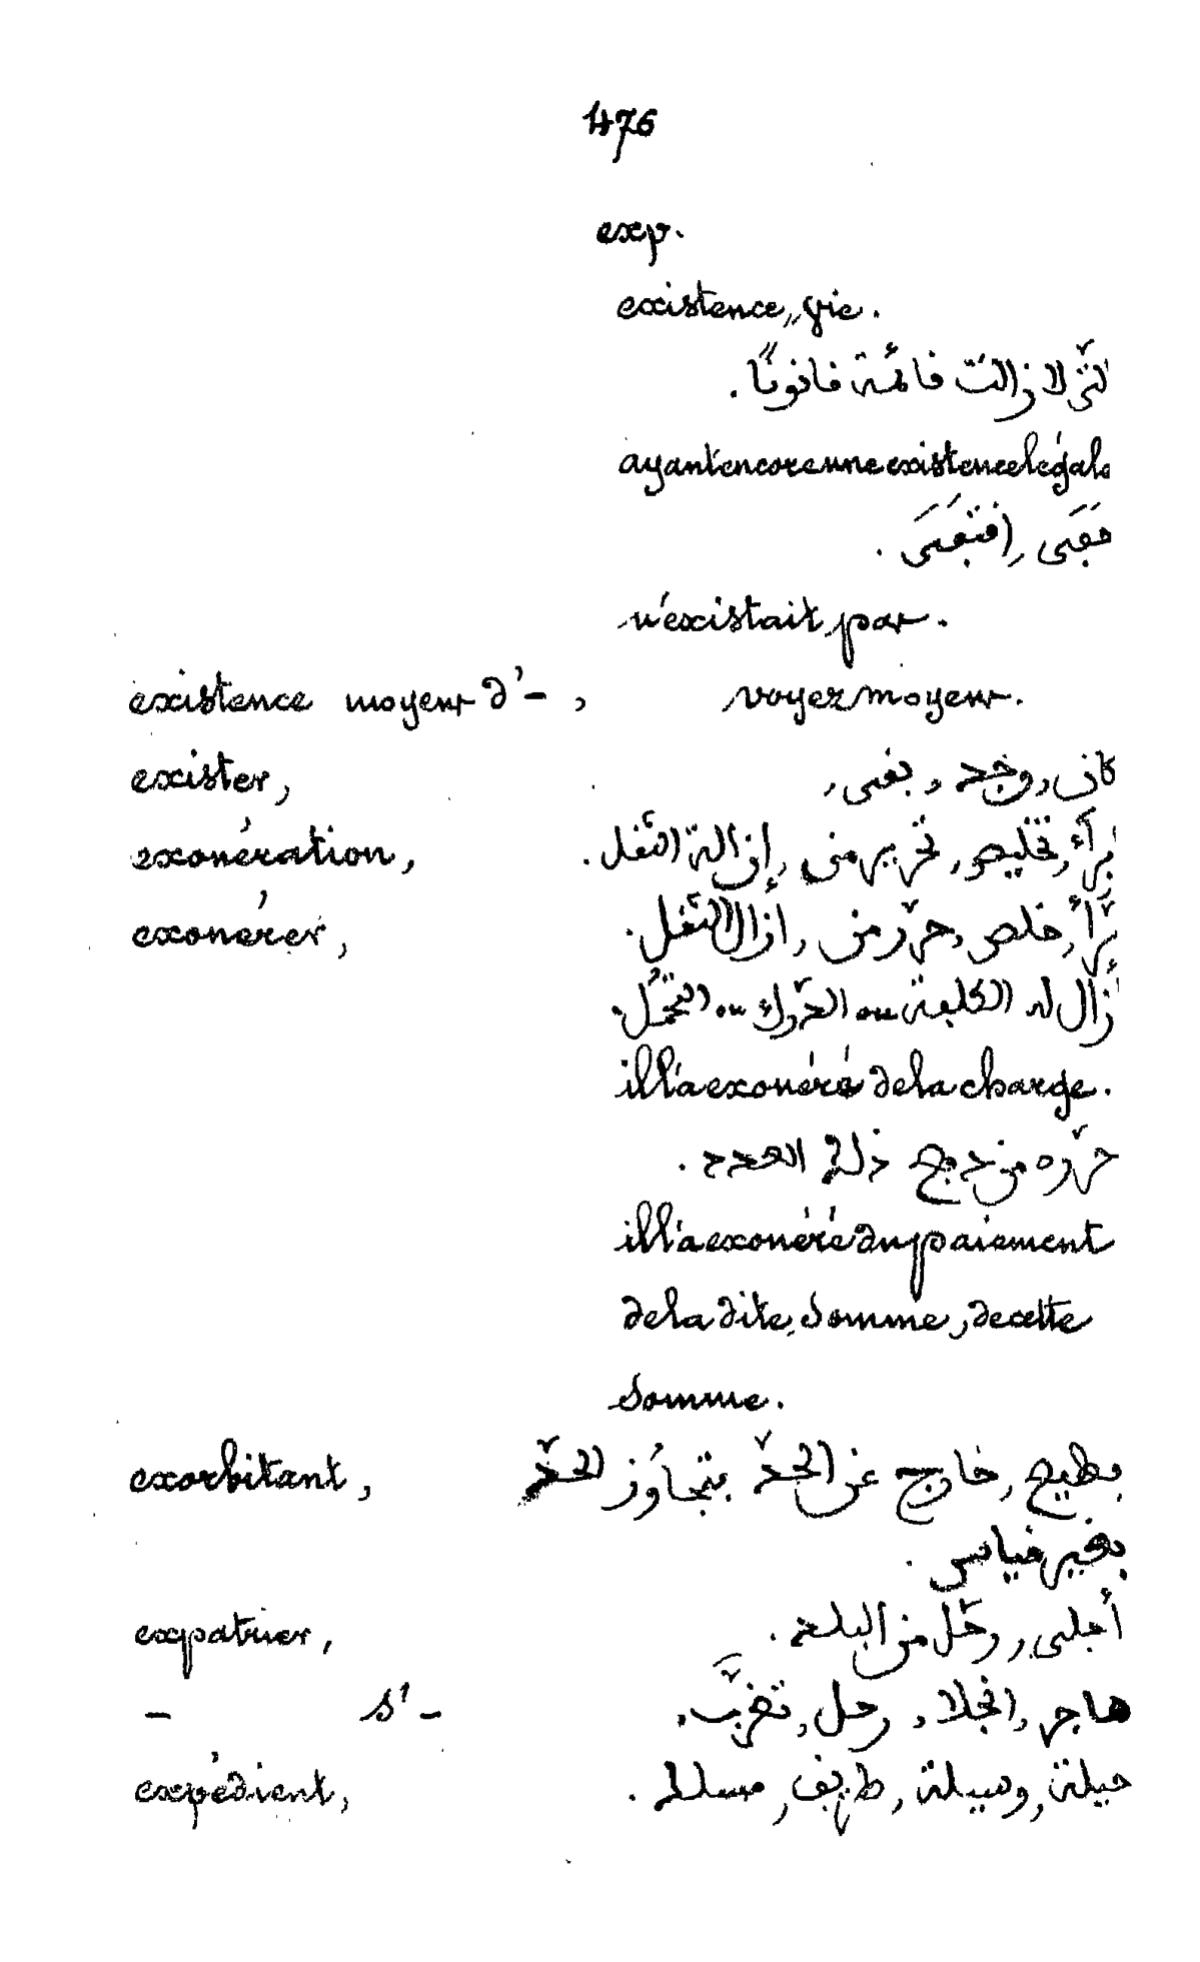 476
exp.
existence, vie.
لتي لا زالت قائمة قانونًا.
ayant encore une existence légale
n'existait pas.
existence moyens d'- , voyez moyens.
exister, كان، وجد، بقى،
exonération, براء، تخليص، تحرير من، إزالة الثقل.
exonérer, برّأ، خلص، حرّر من، أزال الثقل.
أزال له الكلفة ou الدرك ou التحمّل.
ill'a exonéré de la charge.
حرّره من دفع ذلك العدد.
ill'a exonéré du paiement
de la dite somme, de cette
somme.
exorbitant, خارج عن الحدّ يتجاوُز الحدّ
بغير قياس.
expatrier, أجلى، رحّل من البلد.
- s'- هاجر، انجلا، رحل، تغرّب،
expédient, حيلة، وسيلة، طريق، مسلك.